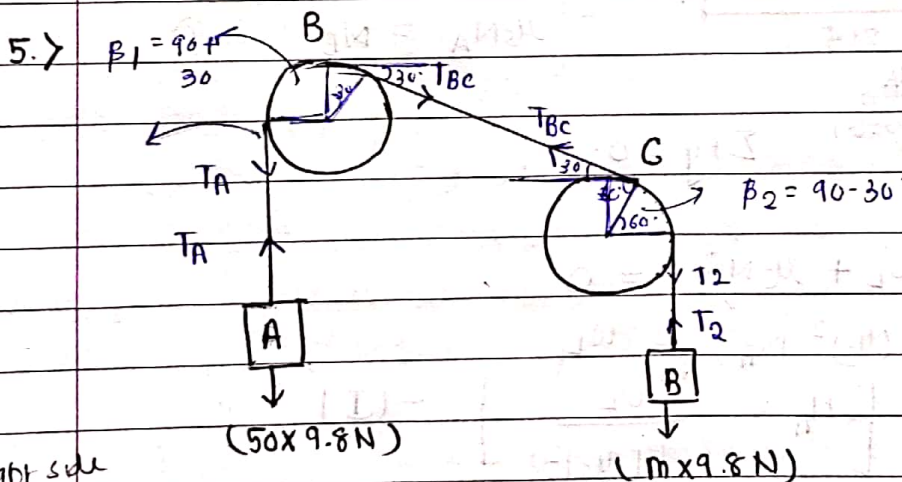 5.>
B
β1 = 90+
30
30
30°
TBC
TBC
C
30
TA
β2 = 90-30
60°
TA
T2
T2
A
B
(50x9.8N)
(mx9.8N)
side